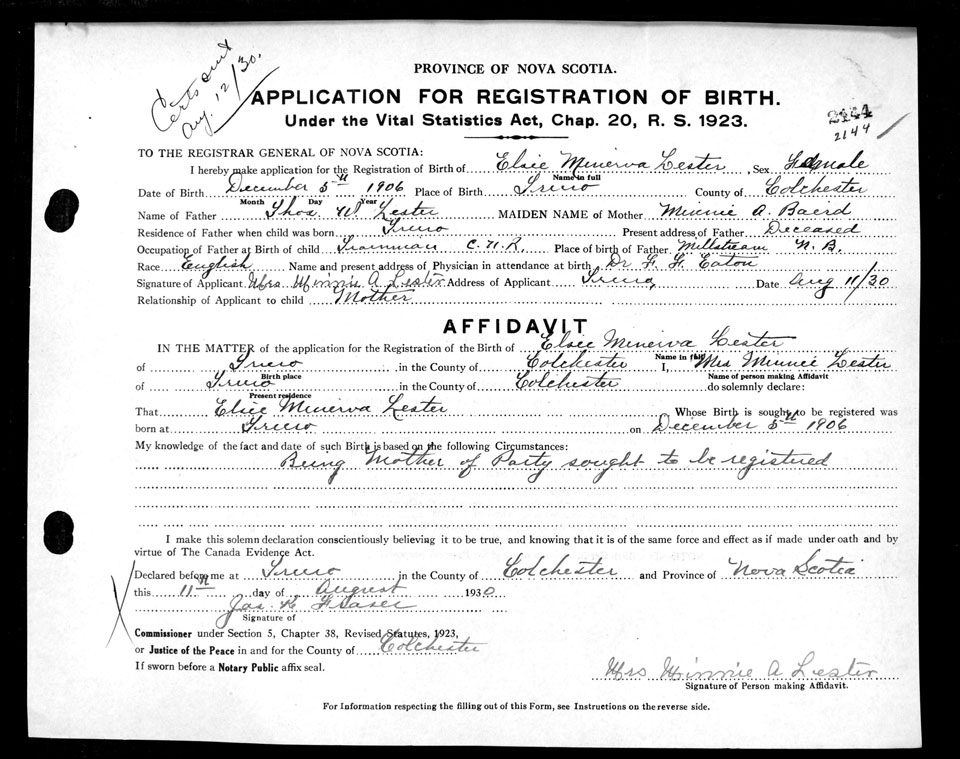 Certs out
Aug. 12/30.
PROVINCE OF NOVA SCOTIA.
APPLICATION FOR REGISTRATION OF BIRTH.
Under the Vital Statistics Act, Chap. 20, R. S. 1923.
2144
2144
TO THE REGISTRAR GENERAL OF NOVA SCOTIA:
I hereby make application for the Registration of Birth of Elsie Minerva Lester, Sex Female
Name in full
Date of Birth December 5th 1906 Place of Birth Truro County of Colchester
Month Day Year
Name of Father Thos. W Lester MAIDEN NAME of Mother Minnie A. Baird
Residence of Father when child was born Truro Present address of Father Deceased
Occupation of Father at Birth of child Trainman C.N.R. Place of birth of Father Millstream N.B.
Race English Name and present address of Physician in attendance at birth Dr F. F. Eaton
Signature of Applicant Mrs Minnie A Lester Address of Applicant Truro, Date Aug 11/30
Relationship of Applicant to child Mother
AFFIDAVIT
IN THE MATTER of the application for the Registration of the Birth of Elsie Minerva Lester
Name in full
of Truro in the County of Colchester I, Mrs Minnie Lester
Birth place Name of person making Affidavit
of Truro in the County of Colchester do solemnly declare:
Present residence
That Elsie Minerva Lester Whose Birth is sought to be registered was
born at Truro on December 5th 1906
My knowledge of the fact and date of such Birth is based on the following Circumstances:
Being Mother of Party sought to be registered
I make this solemn declaration conscientiously believing it to be true, and knowing that it is of the same force and effect as if made under oath and by
virtue of The Canada Evidence Act.
Declared before me at Truro in the County of Colchester and Province of Nova Scotia
this 11th day of August 1930
Jas. K Fraser
Signature of
Commissioner under Section 5, Chapter 38, Revised Statutes, 1923,
or Justice of the Peace in and for the County of Colchester
If sworn before a Notary Public affix seal.
Mrs Minnie A Lester
Signature of Person making Affidavit.
For Information respecting the filling out of this Form, see Instructions on the reverse side.